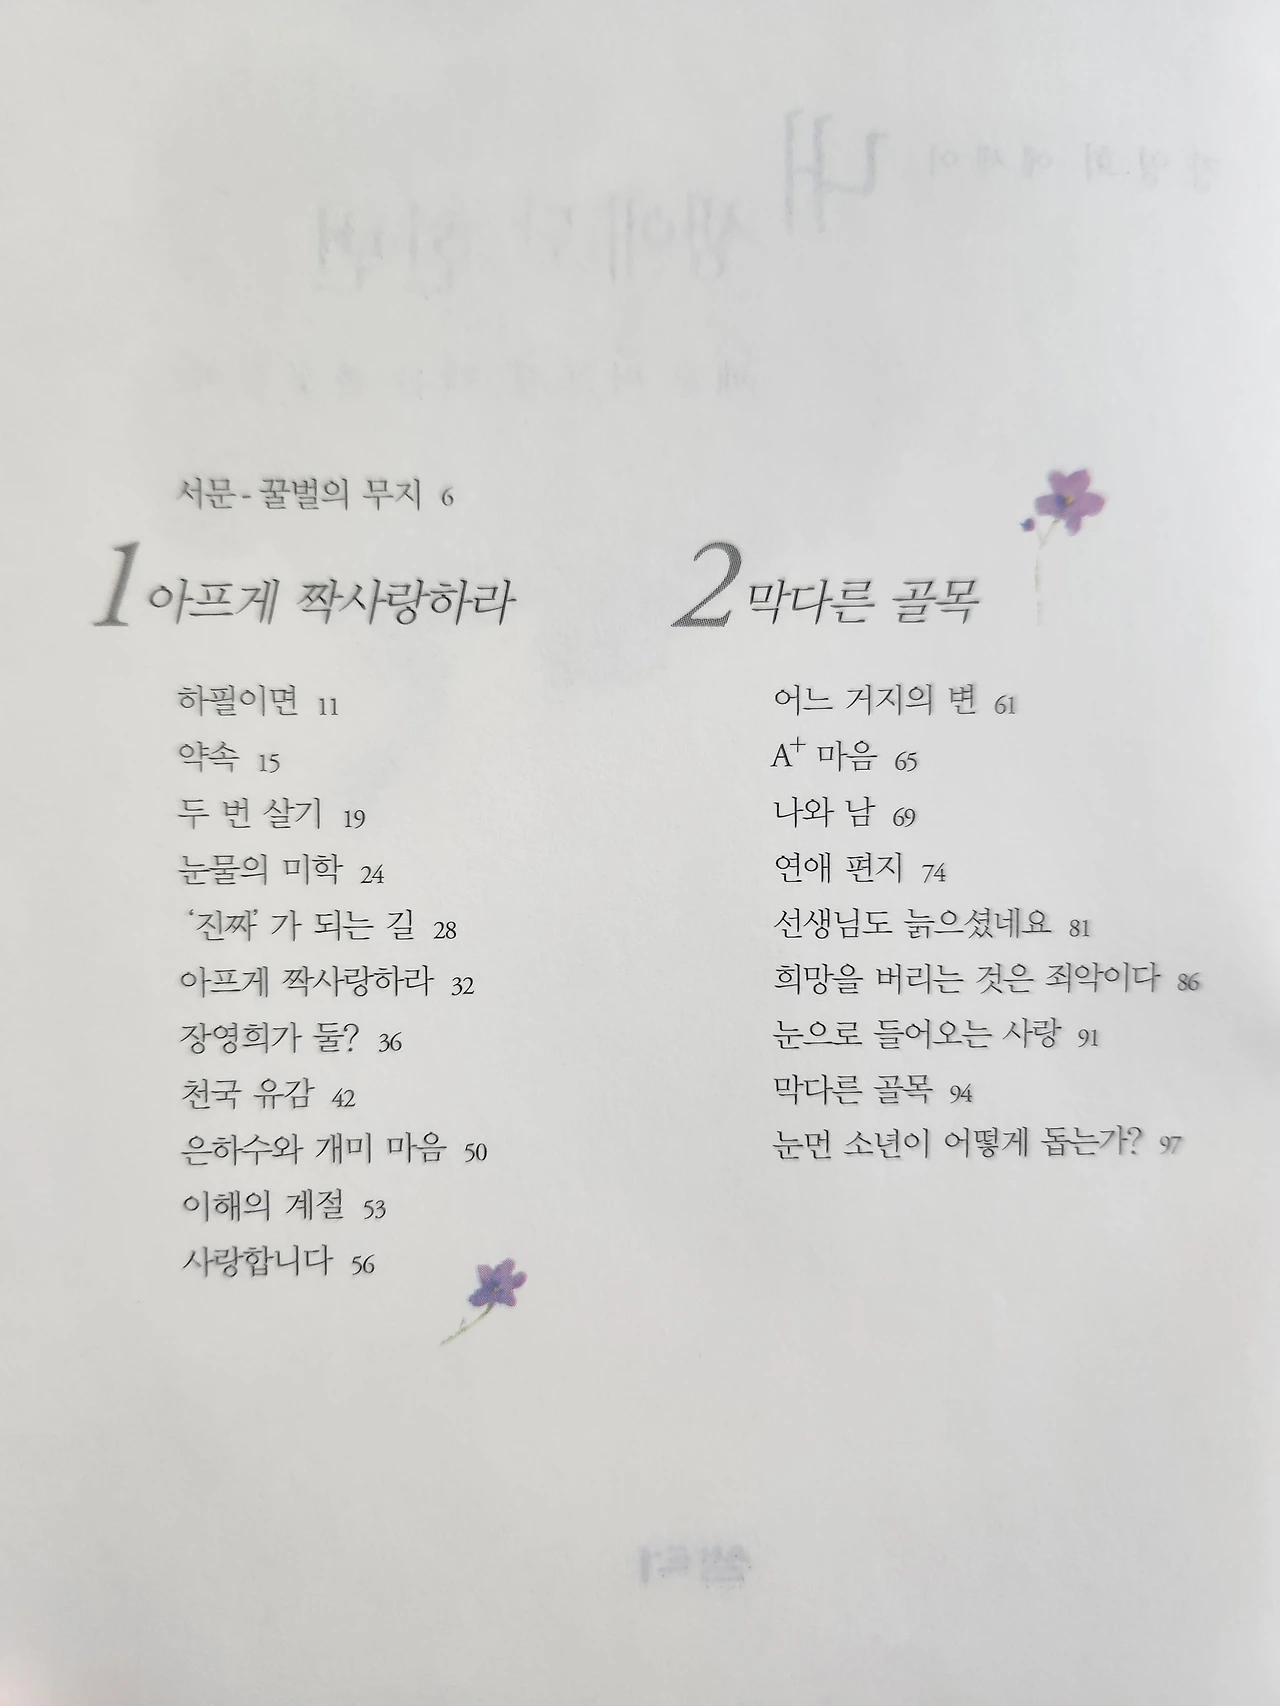 서문 - 꿀벌의 무지 6
1 아프게 짝사랑하라
하필이면 11
약속 15
두 번 살기 19
눈물의 미학 24
‘진짜’가 되는 길 28
아프게 짝사랑하라 32
장영희가 둘? 36
천국 유감 42
은하수와 개미 마음 50
이해의 계절 53
사랑합니다 56
2 막다른 골목
어느 거지의 변 61
A+ 마음 65
나와 남 69
연애 편지 74
선생님도 늙으셨네요 81
희망을 버리는 것은 죄악이다 86
눈으로 들어오는 사랑 91
막다른 골목 94
눈먼 소년이 어떻게 돕는가? 97